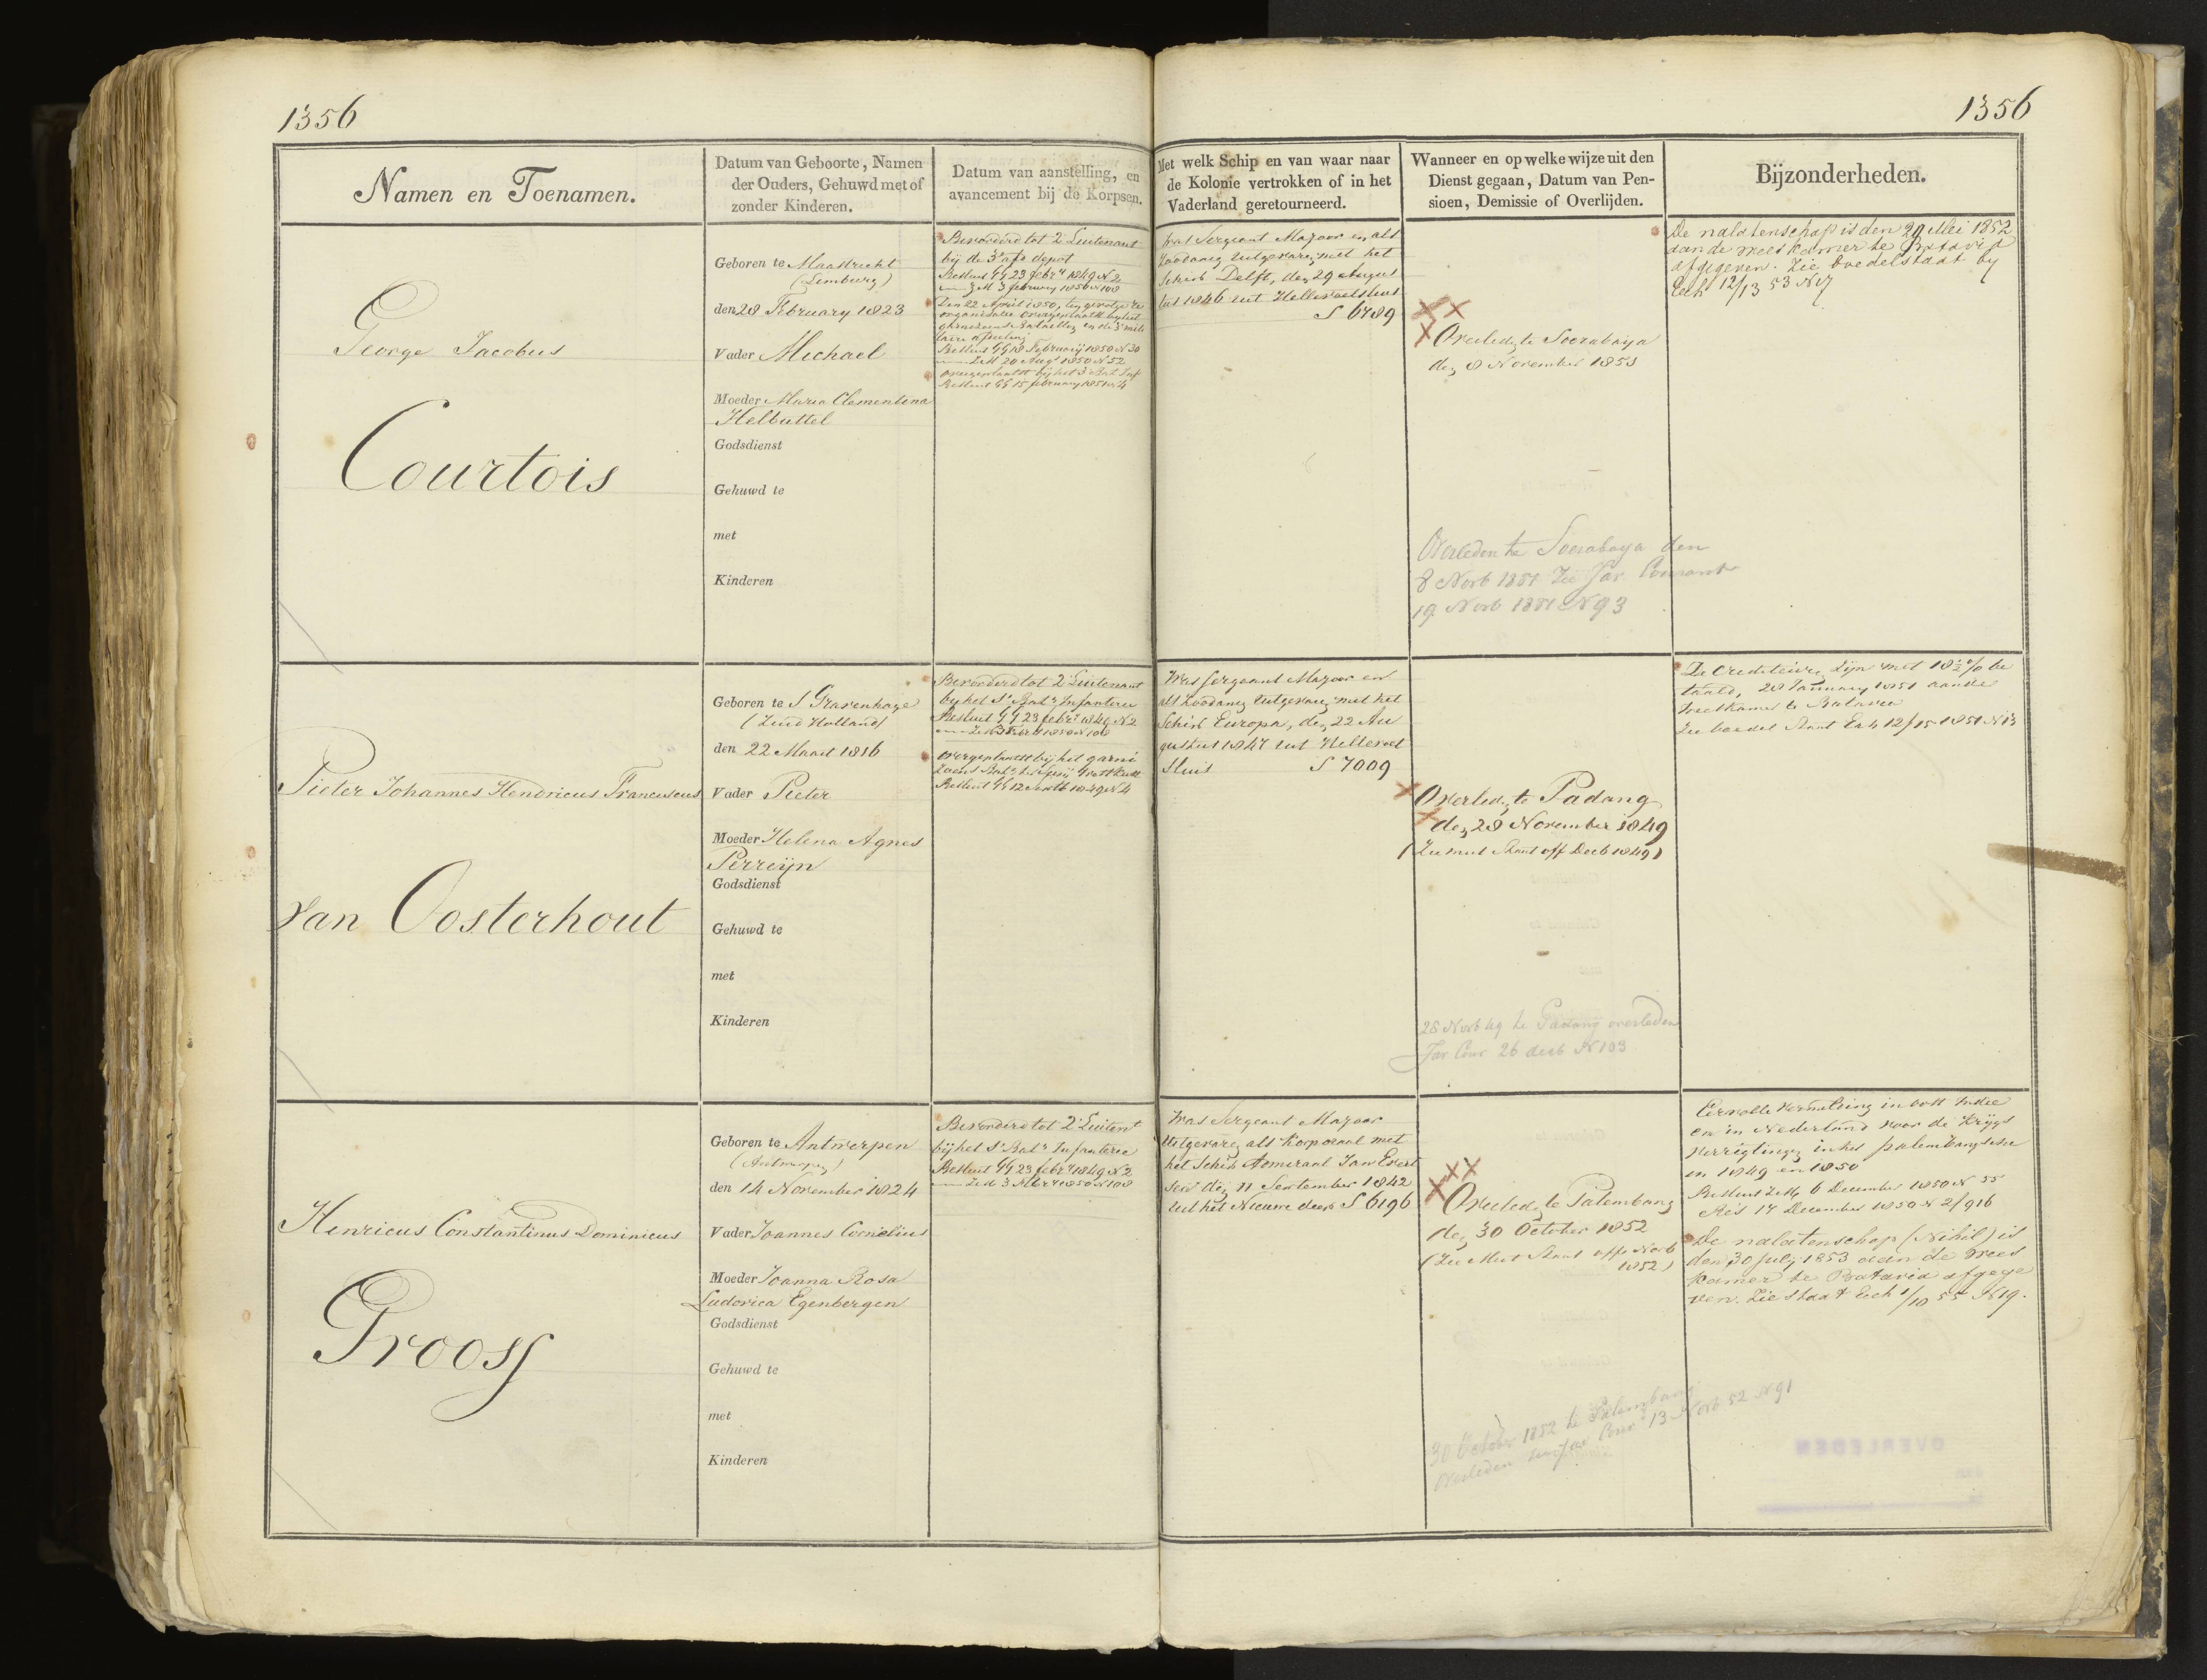 1356
1356
Namen en Toenamen.
Datum van Geboorte, Namen
der Ouders, Gehuwd met of
zonder Kinderen.
Datum van aanstelling, en
avancement bij de Korpsen.
Met welk Schip en van waar naar
de Kolonie vertrokken of in het
Vaderland geretourneerd.
Wanneer en op welke wijze uit den
Dienst gegaan, Datum van Pen-
sioen, Demissie of Overlijden.
Bijzonderheden.
George Jacobus
Courtois
Geboren te Maastricht
(Limburg)
den 28 February 1823
Vader Michael
Moeder Maria Clementina
Helbuttel
Godsdienst
Gehuwd te
met
Kinderen
Bevorderd tot 2e Luitenant
bij de 3e afd depot
Besluit GG 23 febry 1849 N 2
ZM 3 february 1850 N 108
Den 22 April 1850, ten gevolge re
organisatie overgeplaatst by het
garnizoens Bataillon en de 3e mili
taire afdeeling
Besluit GG 18 February 1850 N 30
ZM 20 Augt 1850 N 52
overgeplaatst bij het 3e Bat Inf
Besluit GG 15 february 1851 N 4
Was Sergeant Majoor en als
zoodanig uitgevaren met het
Schip Delft, den 29 Augus
tus 1846 uit Hellevoetsluis
S 6789
Overleden te Soerabaija
den 8 November 1851
Overleden te Soerabaya den
8 Novb 1851 Zie Jav. Courant
19 Novb 1851 N 93
De nalatenschap is den 20 Mei 1852
aan de weeskamer te Batavia
afgegeven. Zie boedelstaat by
Exh 12/13 53 N 17
Pieter Johannes Hendricus Franciscus
van Oosterhout
Geboren te S Gravenhage
(Zuid Holland)
den 22 Maart 1816
Vader Pieter
Moeder Helena Agnes
Perreijn
Godsdienst
Gehuwd te
met
Kinderen
Bevorderd tot 2e Luitenant
by het 5e Batn Infanterie
Besluit GG 23 febry 1849 N 2
ZM 3 Febry 1850 N 108
overgeplaatst bij het garni
zoens Batn
Besluit GG 12 1849 N 4
Was Sergeant Majoor en
als zoodanig uitgevaren met het
Schip Europa, den 22 Au
gustus 1847 uit Hellevoet
sluis S 7009
Overleden te Padang
den 28 November 1849
(Zie mut Staat off Decb 1849)
28 Novb 49 te Padang overleden
Jav Cour 26 decb N 103
De Crediteuren zijn met 18 1/2 % be
taald, 28 January 1851 aan de
weeskamer te Batavia
Zie boedel Staat Exh 12/15 1851 N 13
Henricus Constantinus Dominicus
Prooss
Geboren te Antwerpen
(Antwerpen)
den 14 November 1824
Vader Joannes Cornelius
Moeder Joanna Rosa
Ludovica Egenbergen
Godsdienst
Gehuwd te
met
Kinderen
Bevorderd tot 2e Luitent
bij het 5e Batn Infanterie
Besluit GG 23 febry 1849 N 2
ZM 3 Febry 1850 N 108
Was Sergeant Majoor
Uitgevaren als Korporaal met
het Schip Admiraal Jan Evert
sen den 11 September 1842
uit het Nieuwe diep S 6196
Overleden te Palembang
den 30 October 1852
(Zie Mut Staat off Novb
1852)
30 October 1852 te Palembang
Overleden Jav Cour 13 Novb 52 N 91
Eervolle Vermelding in Oost Indie
en in Nederland voor de Krijgs
verrigtingen in het palembangsche
in 1849 en 1850
Besluit ZM 6 December 1850 N 55
Res 17 December 1850 N 2/916
De nalatenschap (Nihil) is
den 30 July 1853 aan de wees
kamer te Batavia afgege
ven. Zie staat Exh 1/10 55 N 19.